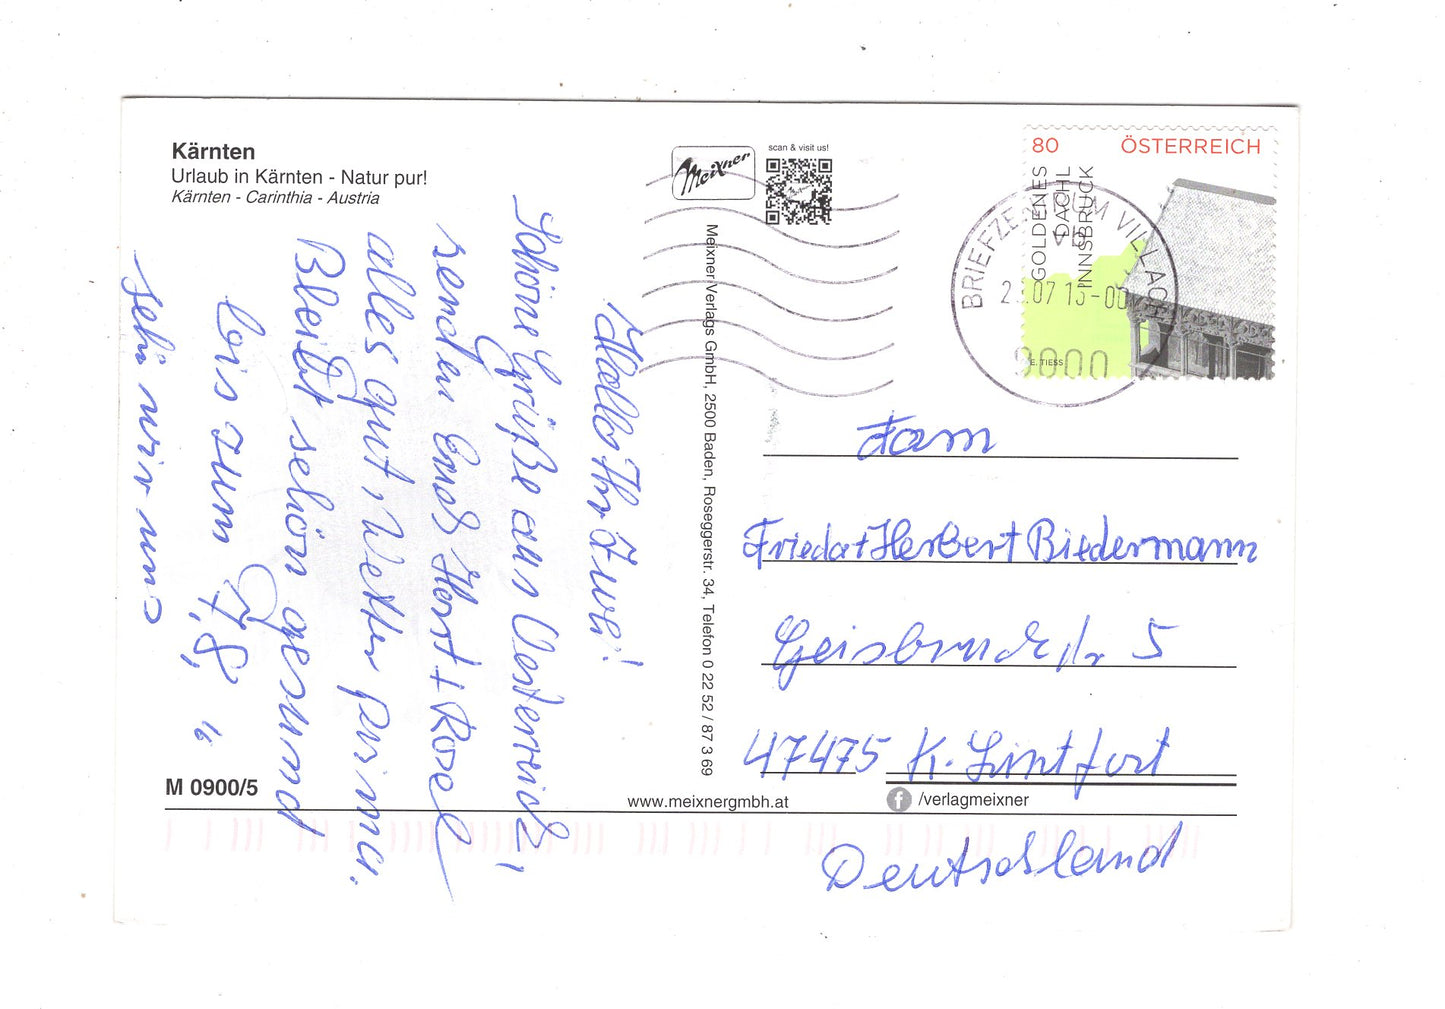 Kärnten
Urlaub in Kärnten - Natur pur!
Kärnten - Carinthia - Austria
Meixner
scan & visit us!
80 ÖSTERREICH
GOLDENES
DACHL
INNSBRUCK
E. TIESS
BRIEFZENTRUM VILLACH
07 15-00
9000
Hallo Ihr Zwei!
Schöne Grüße aus Oesterreich,
senden Euch Horst + Rosel
alles gut, Wetter prima.
Bleibt schön gesund
bis zum 7.8.
sehn wir uns
Meixner Verlags GmbH, 2500 Baden, Roseggerstr. 34, Telefon 0 22 52 / 87 3 69
Fam
Frieda + Herbert Biedermann
Geisbruchstr 5
47475 K. Lintfort
Deutschland
M 0900/5
www.meixnergmbh.at
f /verlagmeixner